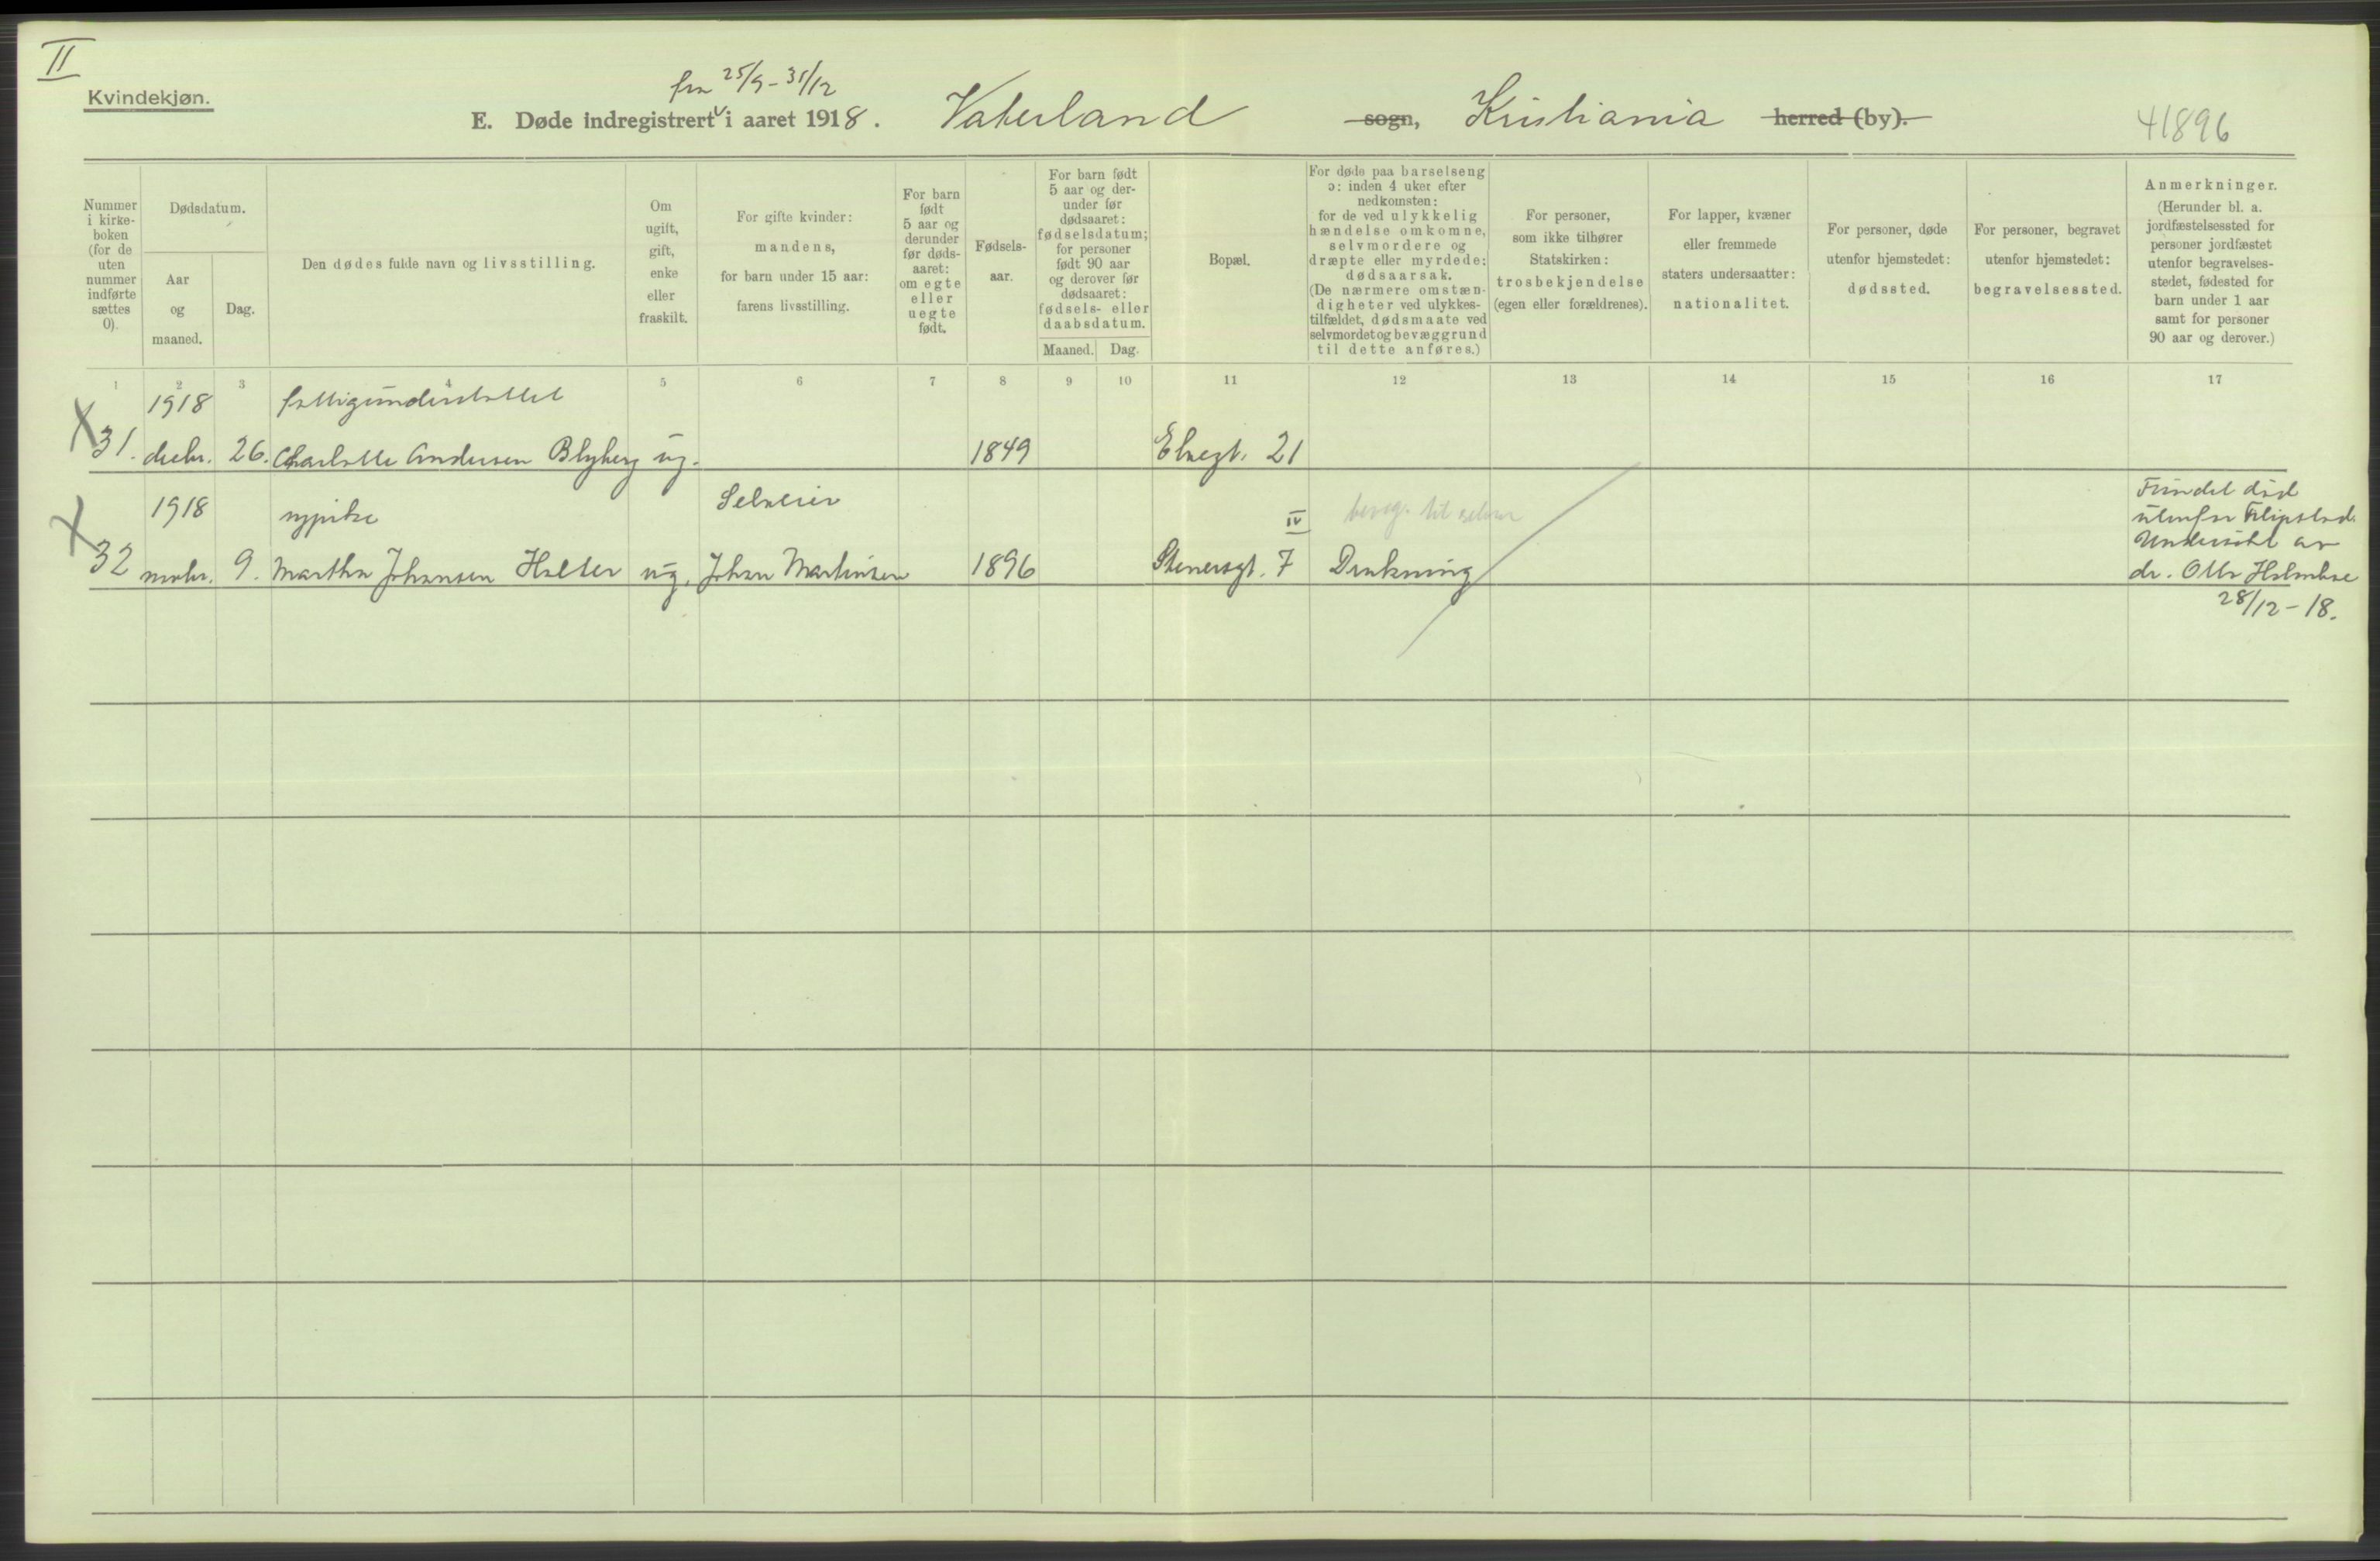 II
Kvindekjøn.
fra 25/9 - 31/12
E. Døde indregistrert i aaret 1918. Vaterland sogn, Kristiania herred (by).
41896
Nummer i kirke-boken (for de uten nummer indførte sættes 0).
Dødsdatum.
Aar og maaned.
Dag.
Den dødes fulde navn og livsstilling.
Om ugift, gift, enke eller fraskilt.
For gifte kvinder: mandens, for barn under 15 aar: farens livsstilling.
For barn født 5 aar og derunder før døds-aaret: om egte eller uegte født.
Fødsels-aar.
For barn født 5 aar og der-under før dødsaaret: fødselsdatum; for personer født 90 aar og derover før dødsaaret: fødsels- eller daabsdatum.
Maaned.
Dag.
Bopæl.
For døde paa barselseng ɔ: inden 4 uker efter nedkomsten: for de ved ulykkelig hændelse omkomne, selvmordere og dræpte eller myrdede: dødsaarsak. (De nærmere omstæn-digheter ved ulykkes-tilfældet, dødsmaate ved selvmordet og bevæggrund til dette anføres.)
For personer, som ikke tilhører Statskirken: trosbekjendelse (egen eller forældrenes).
For lapper, kvæner eller fremmede staters undersaatter: nationalitet.
For personer, døde utenfor hjemstedet: dødssted.
For personer, begravet utenfor hjemstedet: begravelsessted.
Anmerkninger. (Herunder bl. a. jordfæstelsessted for personer jordfæstet utenfor begravelses-stedet, fødested for barn under 1 aar samt for personer 90 aar og derover.)
1 2 3 4 5 6 7 8 9 10 11 12 13 14 15 16 17
1918 fattigunderstøttet
X 31. decbr. 26. Charlotte Andersen Blyberg ug. 1849 Elvegt. 21
1918 sypike Selveier IV
X 32 novbr. 9. Martha Johansen Holter ug. Johan Martinsen 1896 Stenersgt. 7 Drukning
Fundet død
utenfor Filipstad.
Undersøkt av
dr. Otto Holmboe
28/12 - 18.